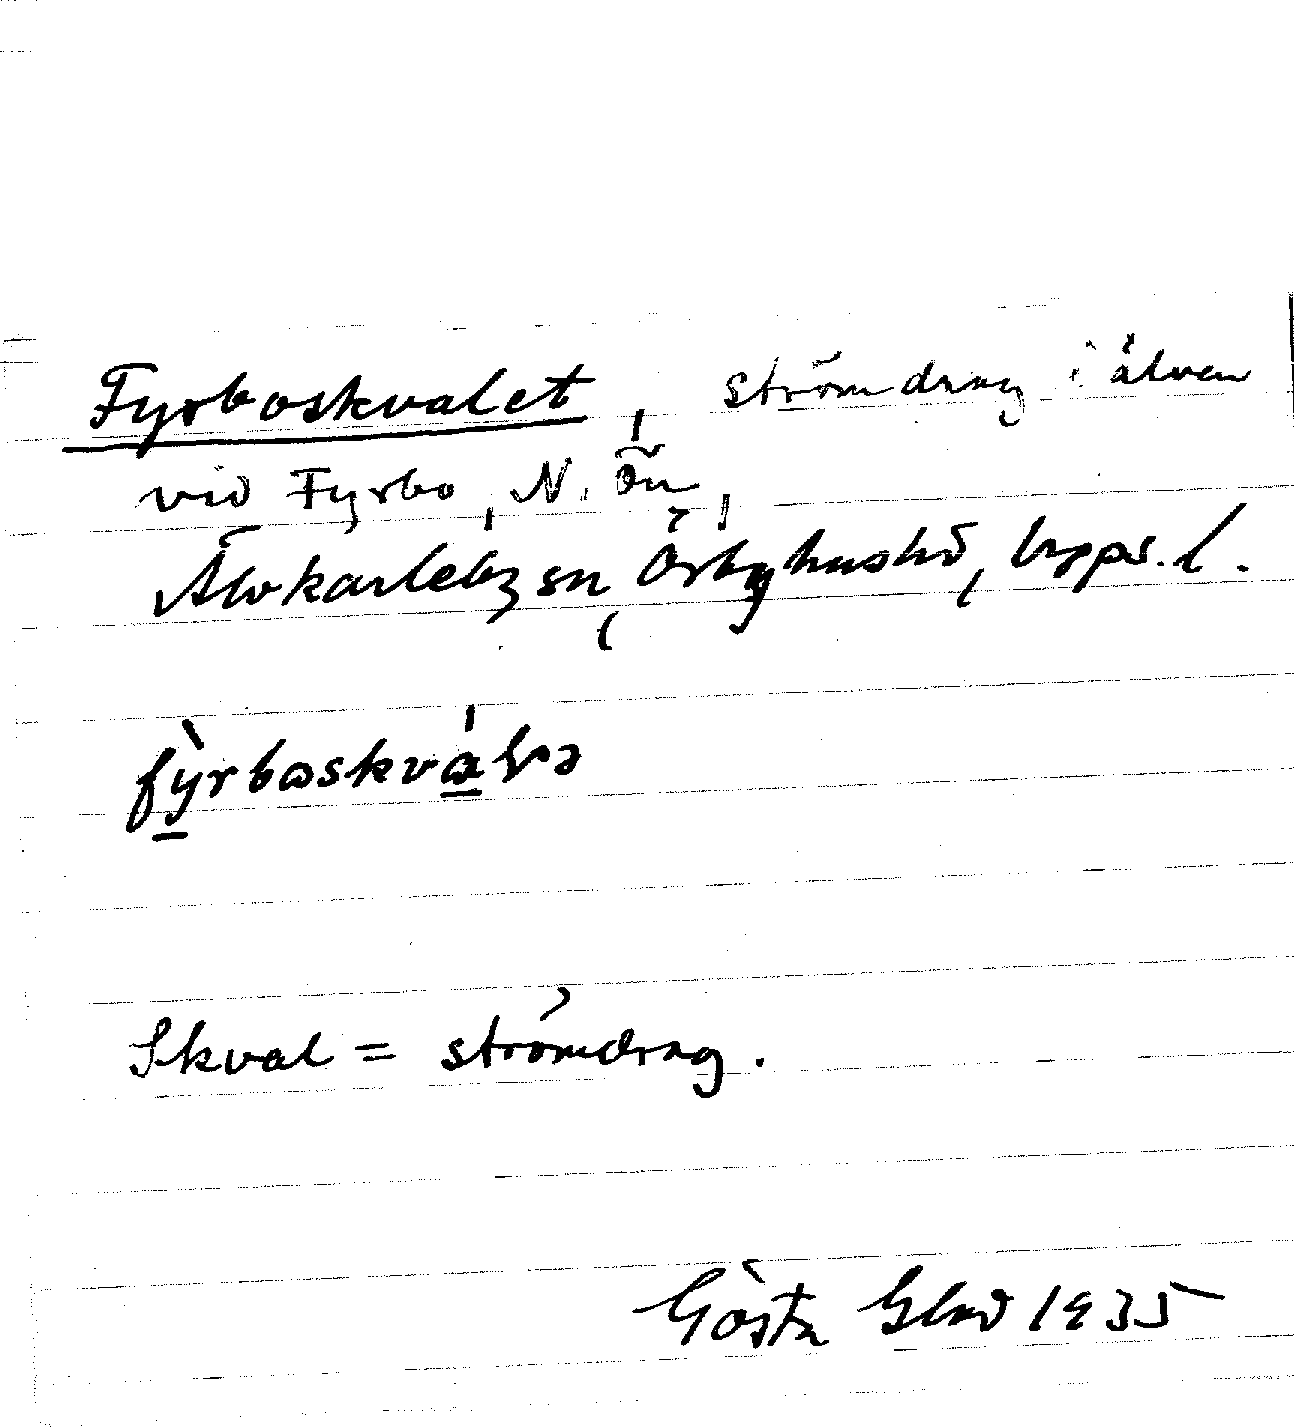 Fyrboskvalet, strömdrag i älven
vid Fyrbo, N. Ön,
Älvkarleby sn, Örbyhus hd, Upps. l.
fỳ̱rboskvá̱ɫə
Skval = strömdrag.
Gösta Glad 1935